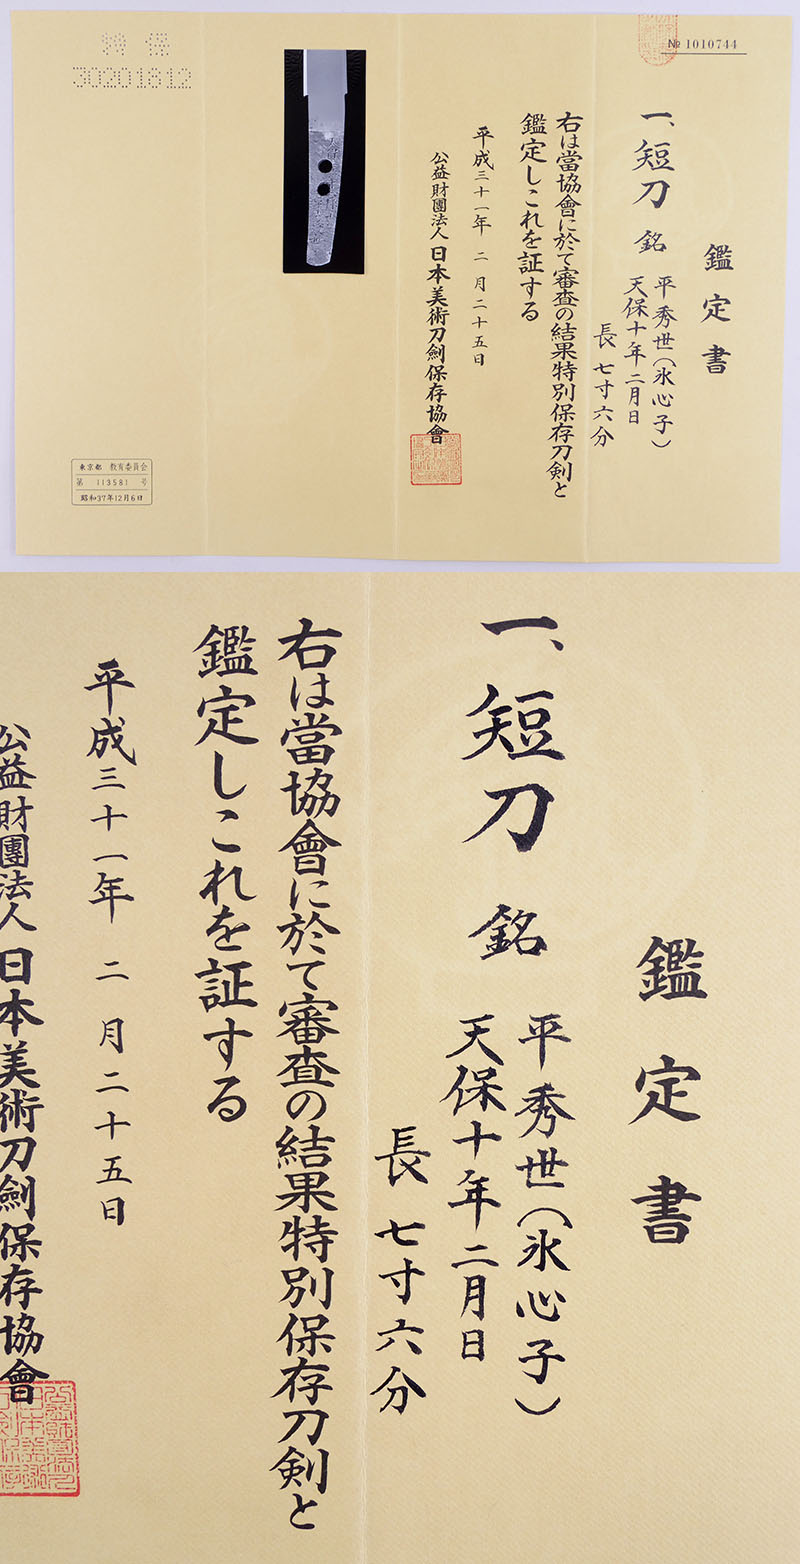 № 1010744
鑑定書
一、短刀 銘 平秀世(氷心子)
天保十年二月日
長 七寸六分
右は當協會に於て審査の結果特別保存刀剣と
鑑定しこれを証する
平成三十一年 二月二十五日
公益財團法人 日本美術刀劍保存協會
特保
30201812
東京都 教育委員会
第 113581 号
昭和37年12月6日
鑑定書
一、短刀 銘 平秀世(氷心子)
天保十年二月日
長 七寸六分
右は當協會に於て審査の結果特別保存刀剣と
鑑定しこれを証する
平成三十一年 二月二十五日
公益財團法人 日本美術刀劍保存協會